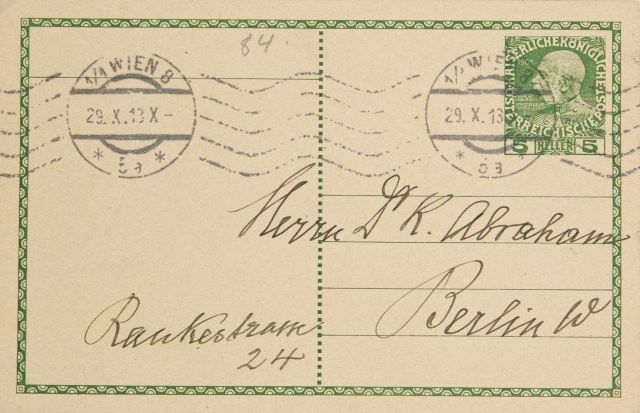 84.
1/1 WIEN 8
29. X. 13 X -
* 5a *
1/1 WIEN
29. X. 13
* 5a
KAISERLICHEKÖNIGLICHE
ÖSTERREICHISCHE POST
1908
5 HELLER 5
Herrn Dr K. Abraham
Berlin W
Rankestrasse
24